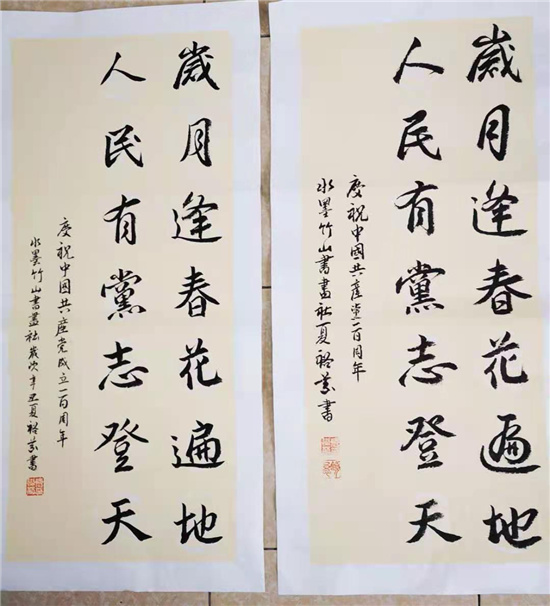 歲月逢春花遍地
人民有黨志登天
慶祝中國共產党一百周年
水墨竹山書畫社夏書
歲月逢春花遍地
人民有黨志登天
慶祝中國共產党成立一百周年
水墨竹山書畫社歲次辛丑夏書